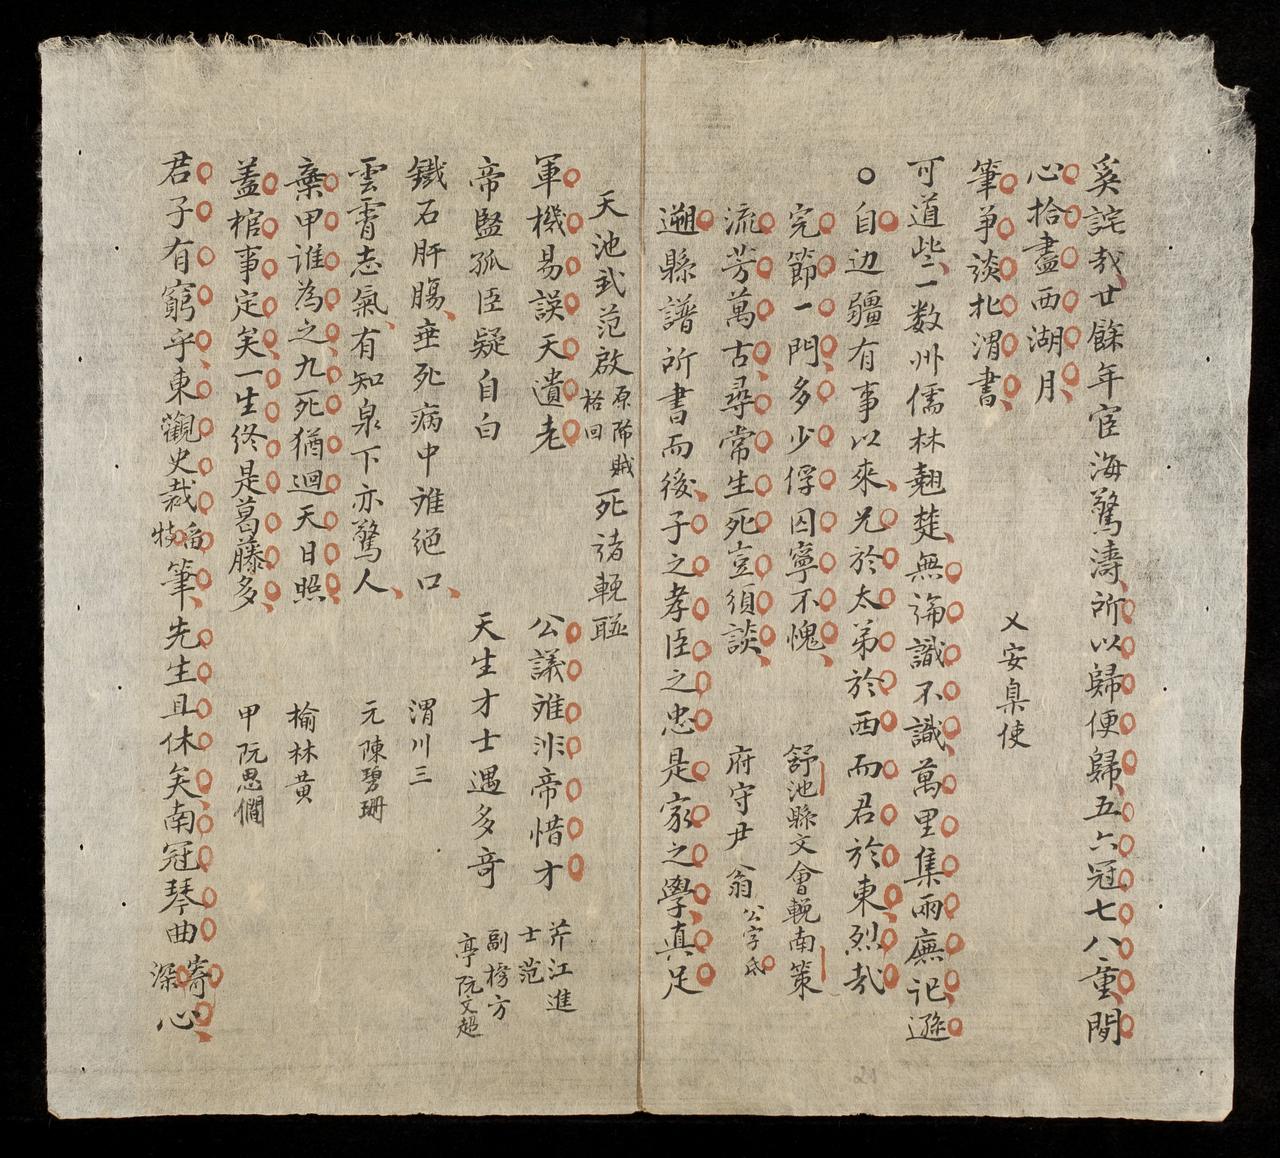 奚詫哉廿餘年宦海驚濤所以歸便歸五六冠七八童閒
心拾盡西湖月
筆爭談北渭書 乂安臬使
可道些一数州儒林翹楚無論識不識萬里集兩廡祀遜
自边疆有事以來兄於太弟於西而君於東烈哉
完節一門多少俘囚寧不愧 舒池縣文會輓南策
流芳萬古尋常生死豈須談 府守尹翁公字氐
遡縣譜所書而後子之孝臣之忠是家之學真足
天池武范啟原陷賊格回死諸輓聯
軍機易誤天遺老 公議难非帝惜才 芹江進士范
帝監孤臣疑自白 天生才士遇多奇 副榜方亭阮文超
鐵石肝腸垂死病中难絕口 渭川三
雲霄志氣有知泉下亦驚人 元陳碧珊
棄甲谁為之九死猶迴天日照 榆林黄
蓋棺事定矣一生終是葛藤多 甲阮思僩
君子有窮乎東觀史裁特畱筆先生且休矣南冠琴曲寄深心